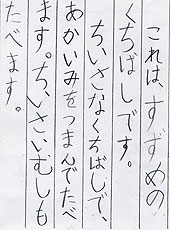 これは、すずめの
くちばしです。
ちいさなくちばしで、
あかいみをつまんでたべ
ます。ちいさいむしも
たべます。